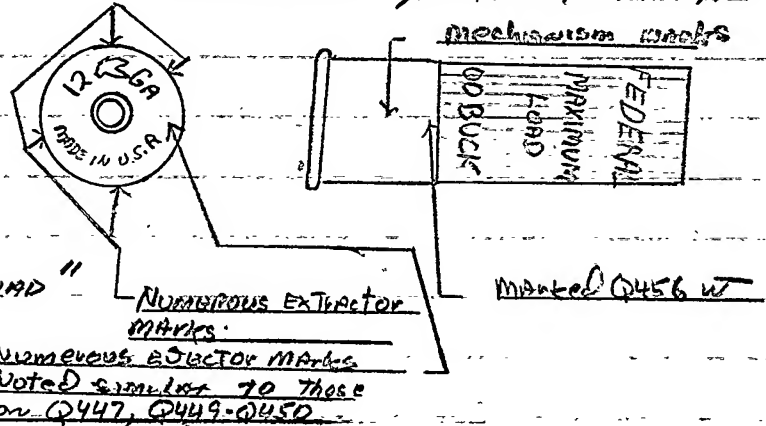 mechanism marks
12 GA
MADE IN U.S.A
FEDERAL
MAXIMUM
LOAD
00 BUCK
LOAD "
Numerous Extractor
Marks.
Marked Q456 W
Numerous ejector Marks
Noted similar to those
on Q447, Q449-Q450